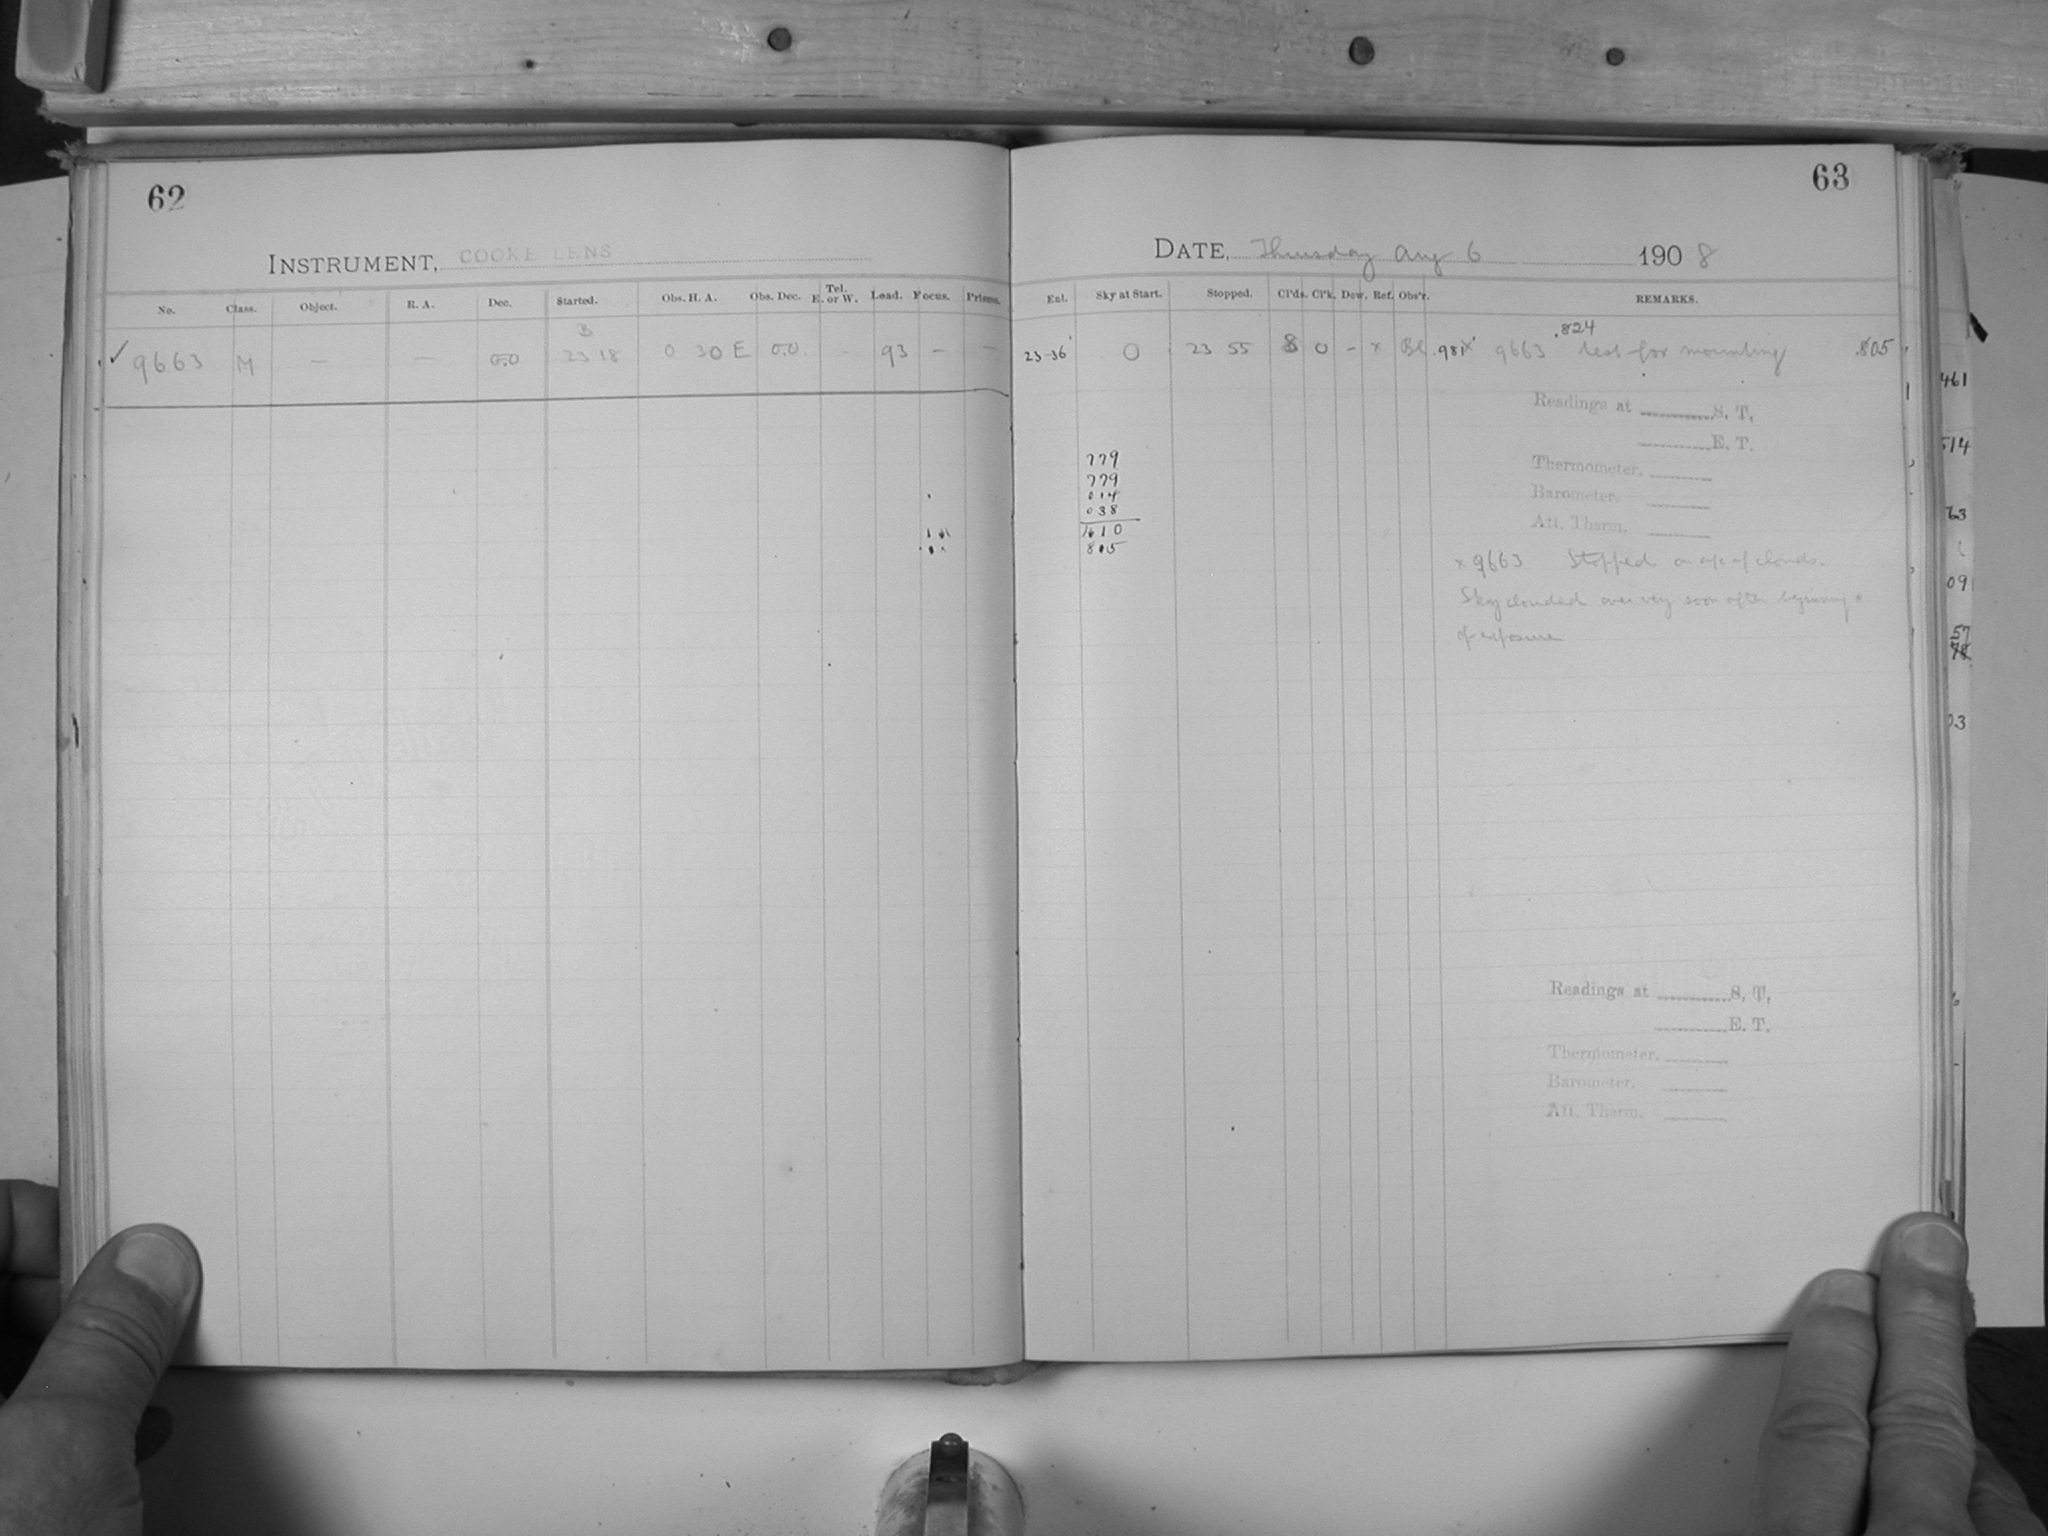 62
INSTRUMENT, COOKE LENS
No. Class. Object. R. A. Dec. Started. Obs. H. A. Obs. Dec. Tel. E. or W. Lead. Focus. Prisms.
B
✓ 9663 M — — 0.0 23 18 0 30 E 0.0. - 93 - —
63
DATE, Thursday Aug 6 1908
Enl. Sky at Start. Stopped. Cl'ds. Cl'k. Dew. Ref. Obs'r. REMARKS.
.824
23-36 0 23 55 8 0 - x Bl .981x 9663 test for mounting .805
Readings at S. T.
E. T.
Thermometer.
Barometer.
Att. Therm.
779
779
014
038
1610
805
x 9663 Stopped on a/c of clouds.
Sky clouded over very soon after beginning
of exposure
Readings at S. T.
E. T.
Thermometer.
Barometer.
Att. Therm.
461
514
63
09
57
78
03